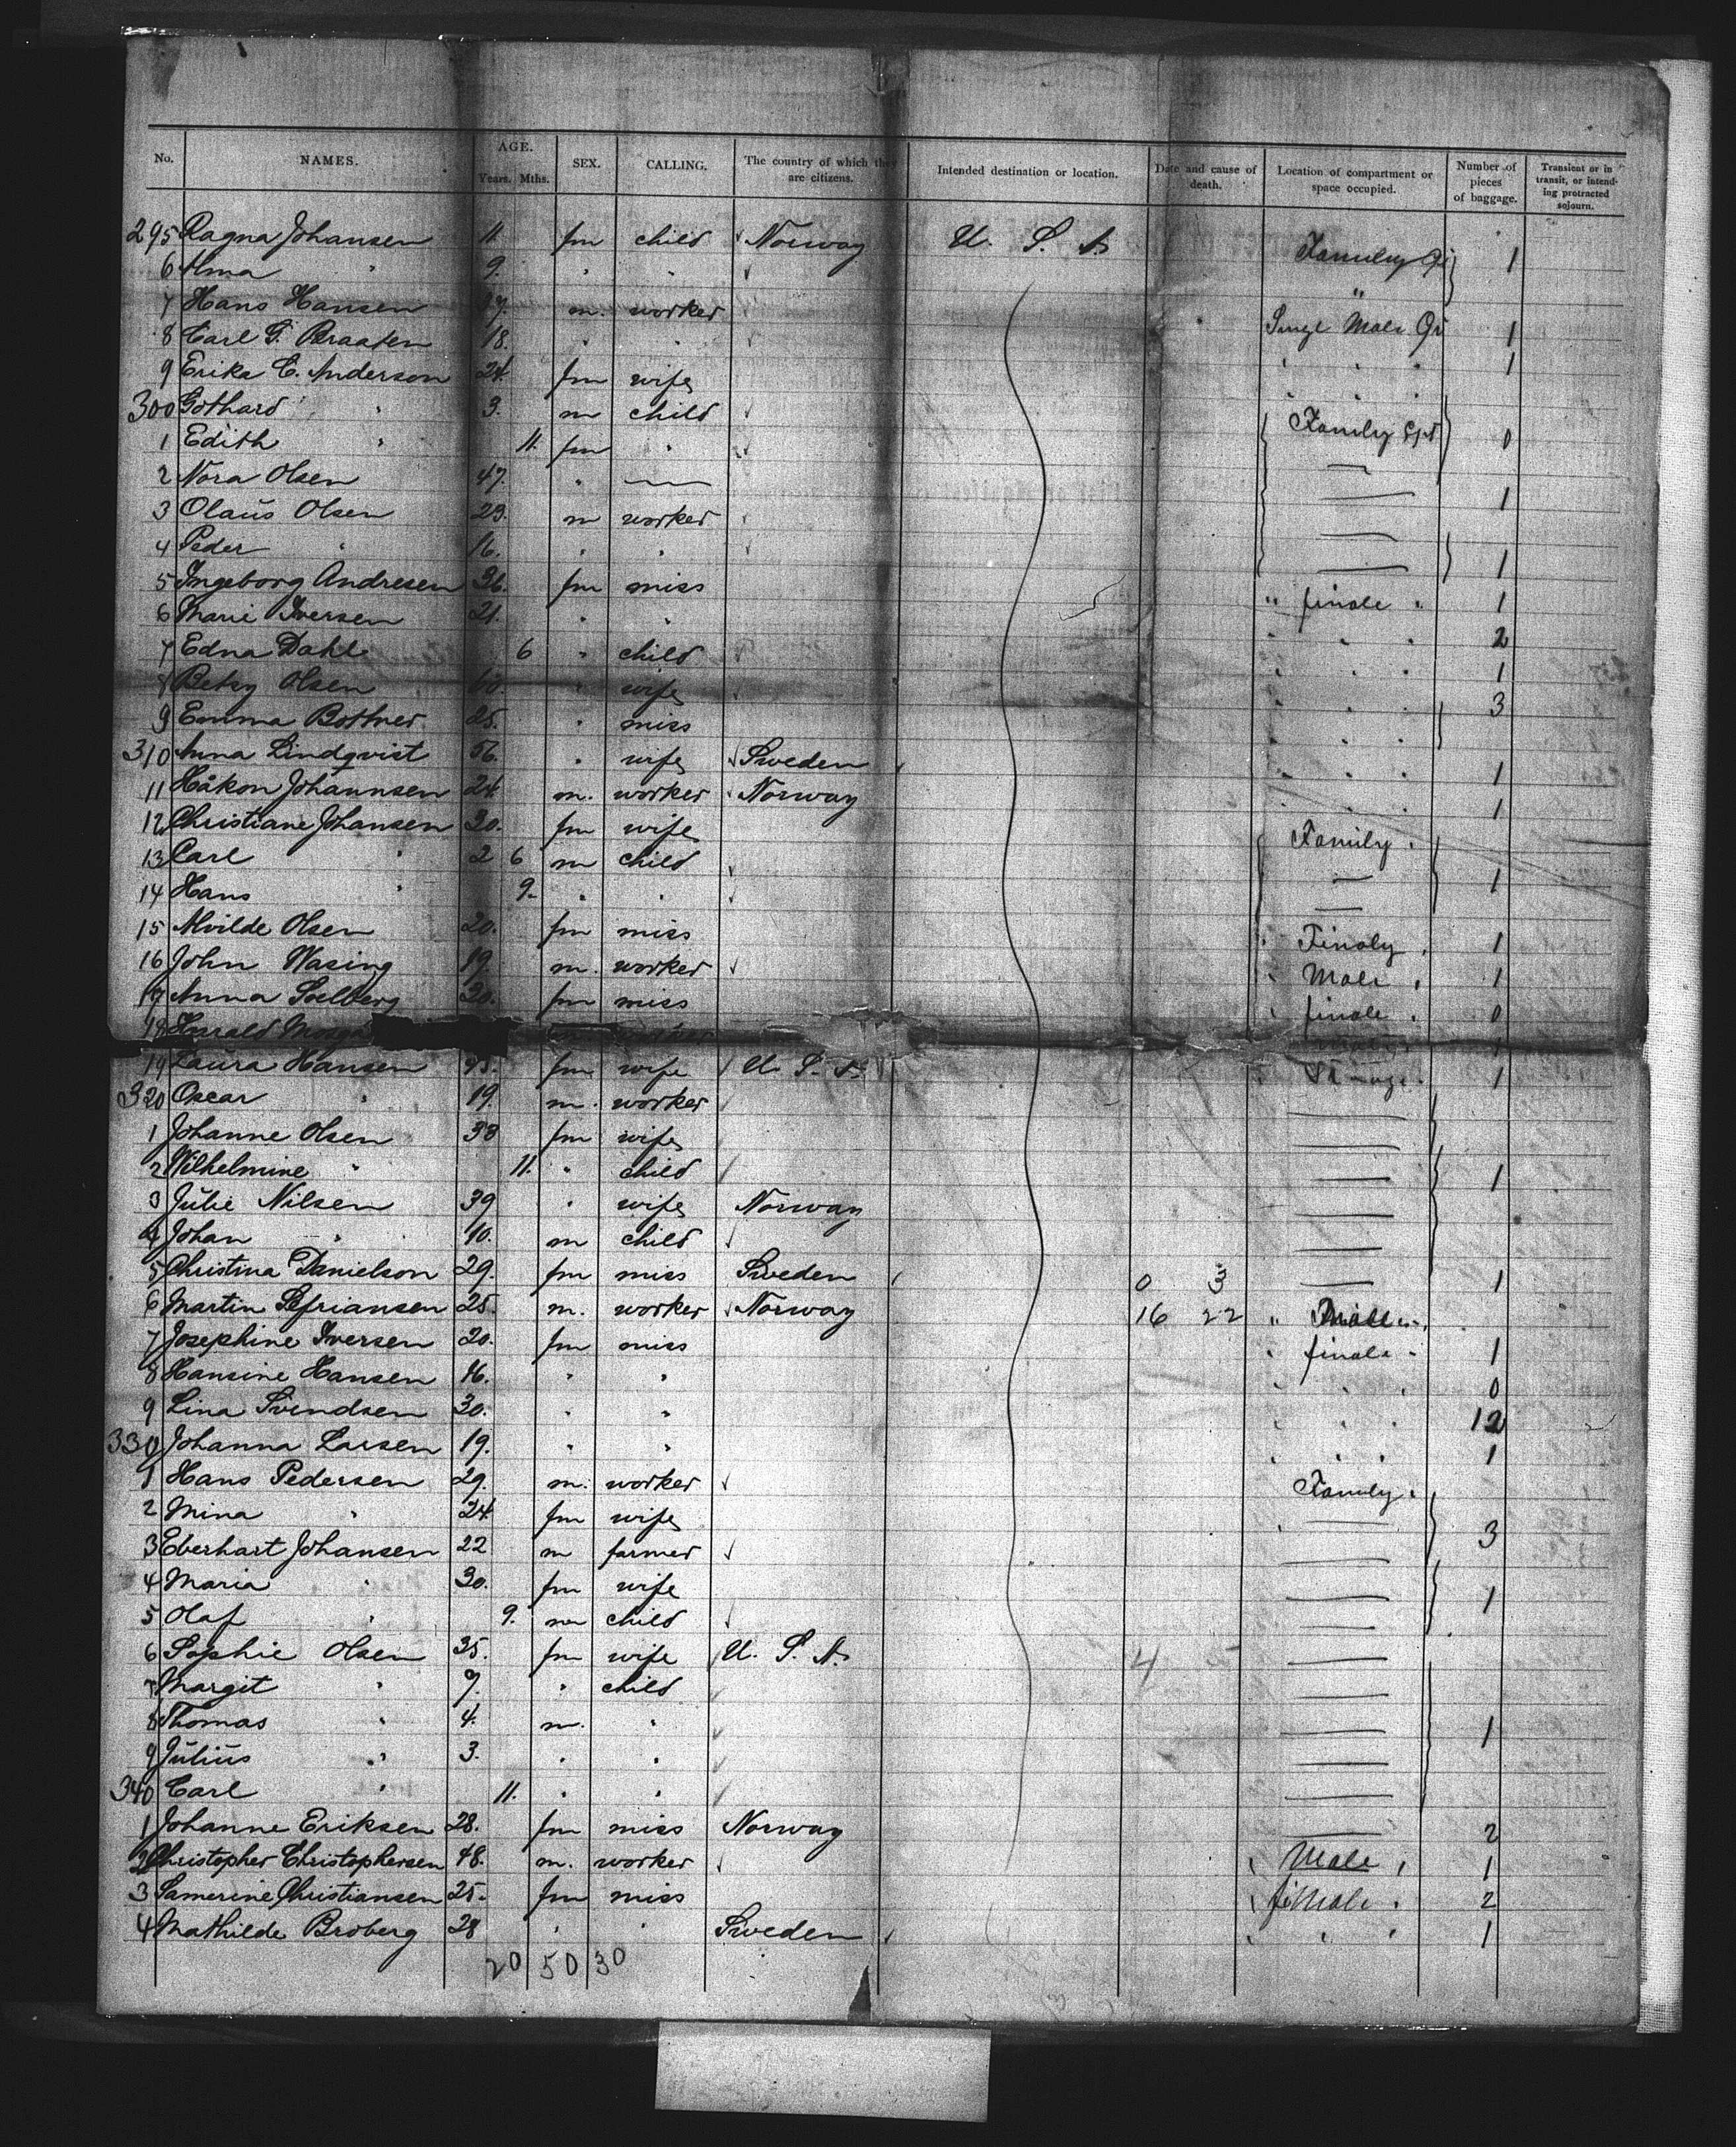 No. NAMES. AGE. Years. Mths. SEX. CALLING. The country of which they are citizens. Intended destination or location. Date and cause of death. Location of compartment or space occupied. Number of pieces of baggage. Transient or in transit, or intending protracted sojourn.
295 Ragna Johansen 11 fm child Norway U. S. A. Family 1
6 Alma " 9. " "
7 Hans Hansen m. worker Male 1
8 Carl G. Braaten 18. " " " " " 1
9 Erika C. Anderson 24. fm wife " " "
300 Gothard " 3. m child Family 0
1 Edith " 11. fm "
2 Nora Olsen 47. " — 1
3 Olaüs Olsen 23. m worker
4 Peder " 16. " " 1
5 Ingeborg Andresen 36. fm miss " finale " 1
6 Marie Iversen 21. " " " " " 2
7 Edna Dahl 6 " child " " " 1
8 Betsy Olsen " wife " " " 3
9 Emma Bottner 25. " miss " " "
310 Anna Lindqvist 56. " wife Sweden " " " 1
11 Håkon Johannsen 24. m. worker Norway " " " 1
12 Christiane Johansen 30. fm wife Family "
13 Carl " 2 6 m child — 1
14 Hans " 9. " " —
15 Alvilde Olsen 20. fm miss " Finaly " 1
16 John Wasing 19. m. worker " Male " 1
17 Anna Solberg 20. fm miss " finale " 0
18 Harald 1
19 Laura Hansen 45. fm wife U. S. A. 1
320 Oscar " 19. m. worker —
1 Johanne Olsen 33 fm wife —
2 Wilhelmine " 11. " child — 1
3 Julie Nilsen 39 " wife Norway —
4 Johan " 10. m child —
5 Christina Danielson 29. fm miss Sweden 0 3 — 1
6 Martin Sefriansen 25. m. worker Norway 16 22 "
7 Josephine Iversen 20. fm miss " finale " 1
8 Hansine Hansen 16. " " " " " 0
9 Lina Svendsen 30. " " " " " 12
330 Johanna Larsen 19. " " " " " 1
1 Hans Pedersen 29. m. worker Family "
2 Mina " 24. fm wife — 3
3 Eberhart Johansen 22 m farmer —
4 Maria " 30. fm wife — 1
5 Olaf " 9. m child —
6 Sophie Olsen 35. fm wife U. S. A. 4 —
7 Margit " 7. " child —
8 Thomas " 4. m. " — 1
9 Julius " 3. " " —
340 Carl " 11. " " —
1 Johanne Eriksen 28. fm miss Norway — 2
2 Christopher Christophersen 48. m. worker " Male " 1
3 Samerine Christiansen 25. fm miss " fimale " 2
4 Mathilde Broberg 28 " " Sweden " " " 1
20 50 30